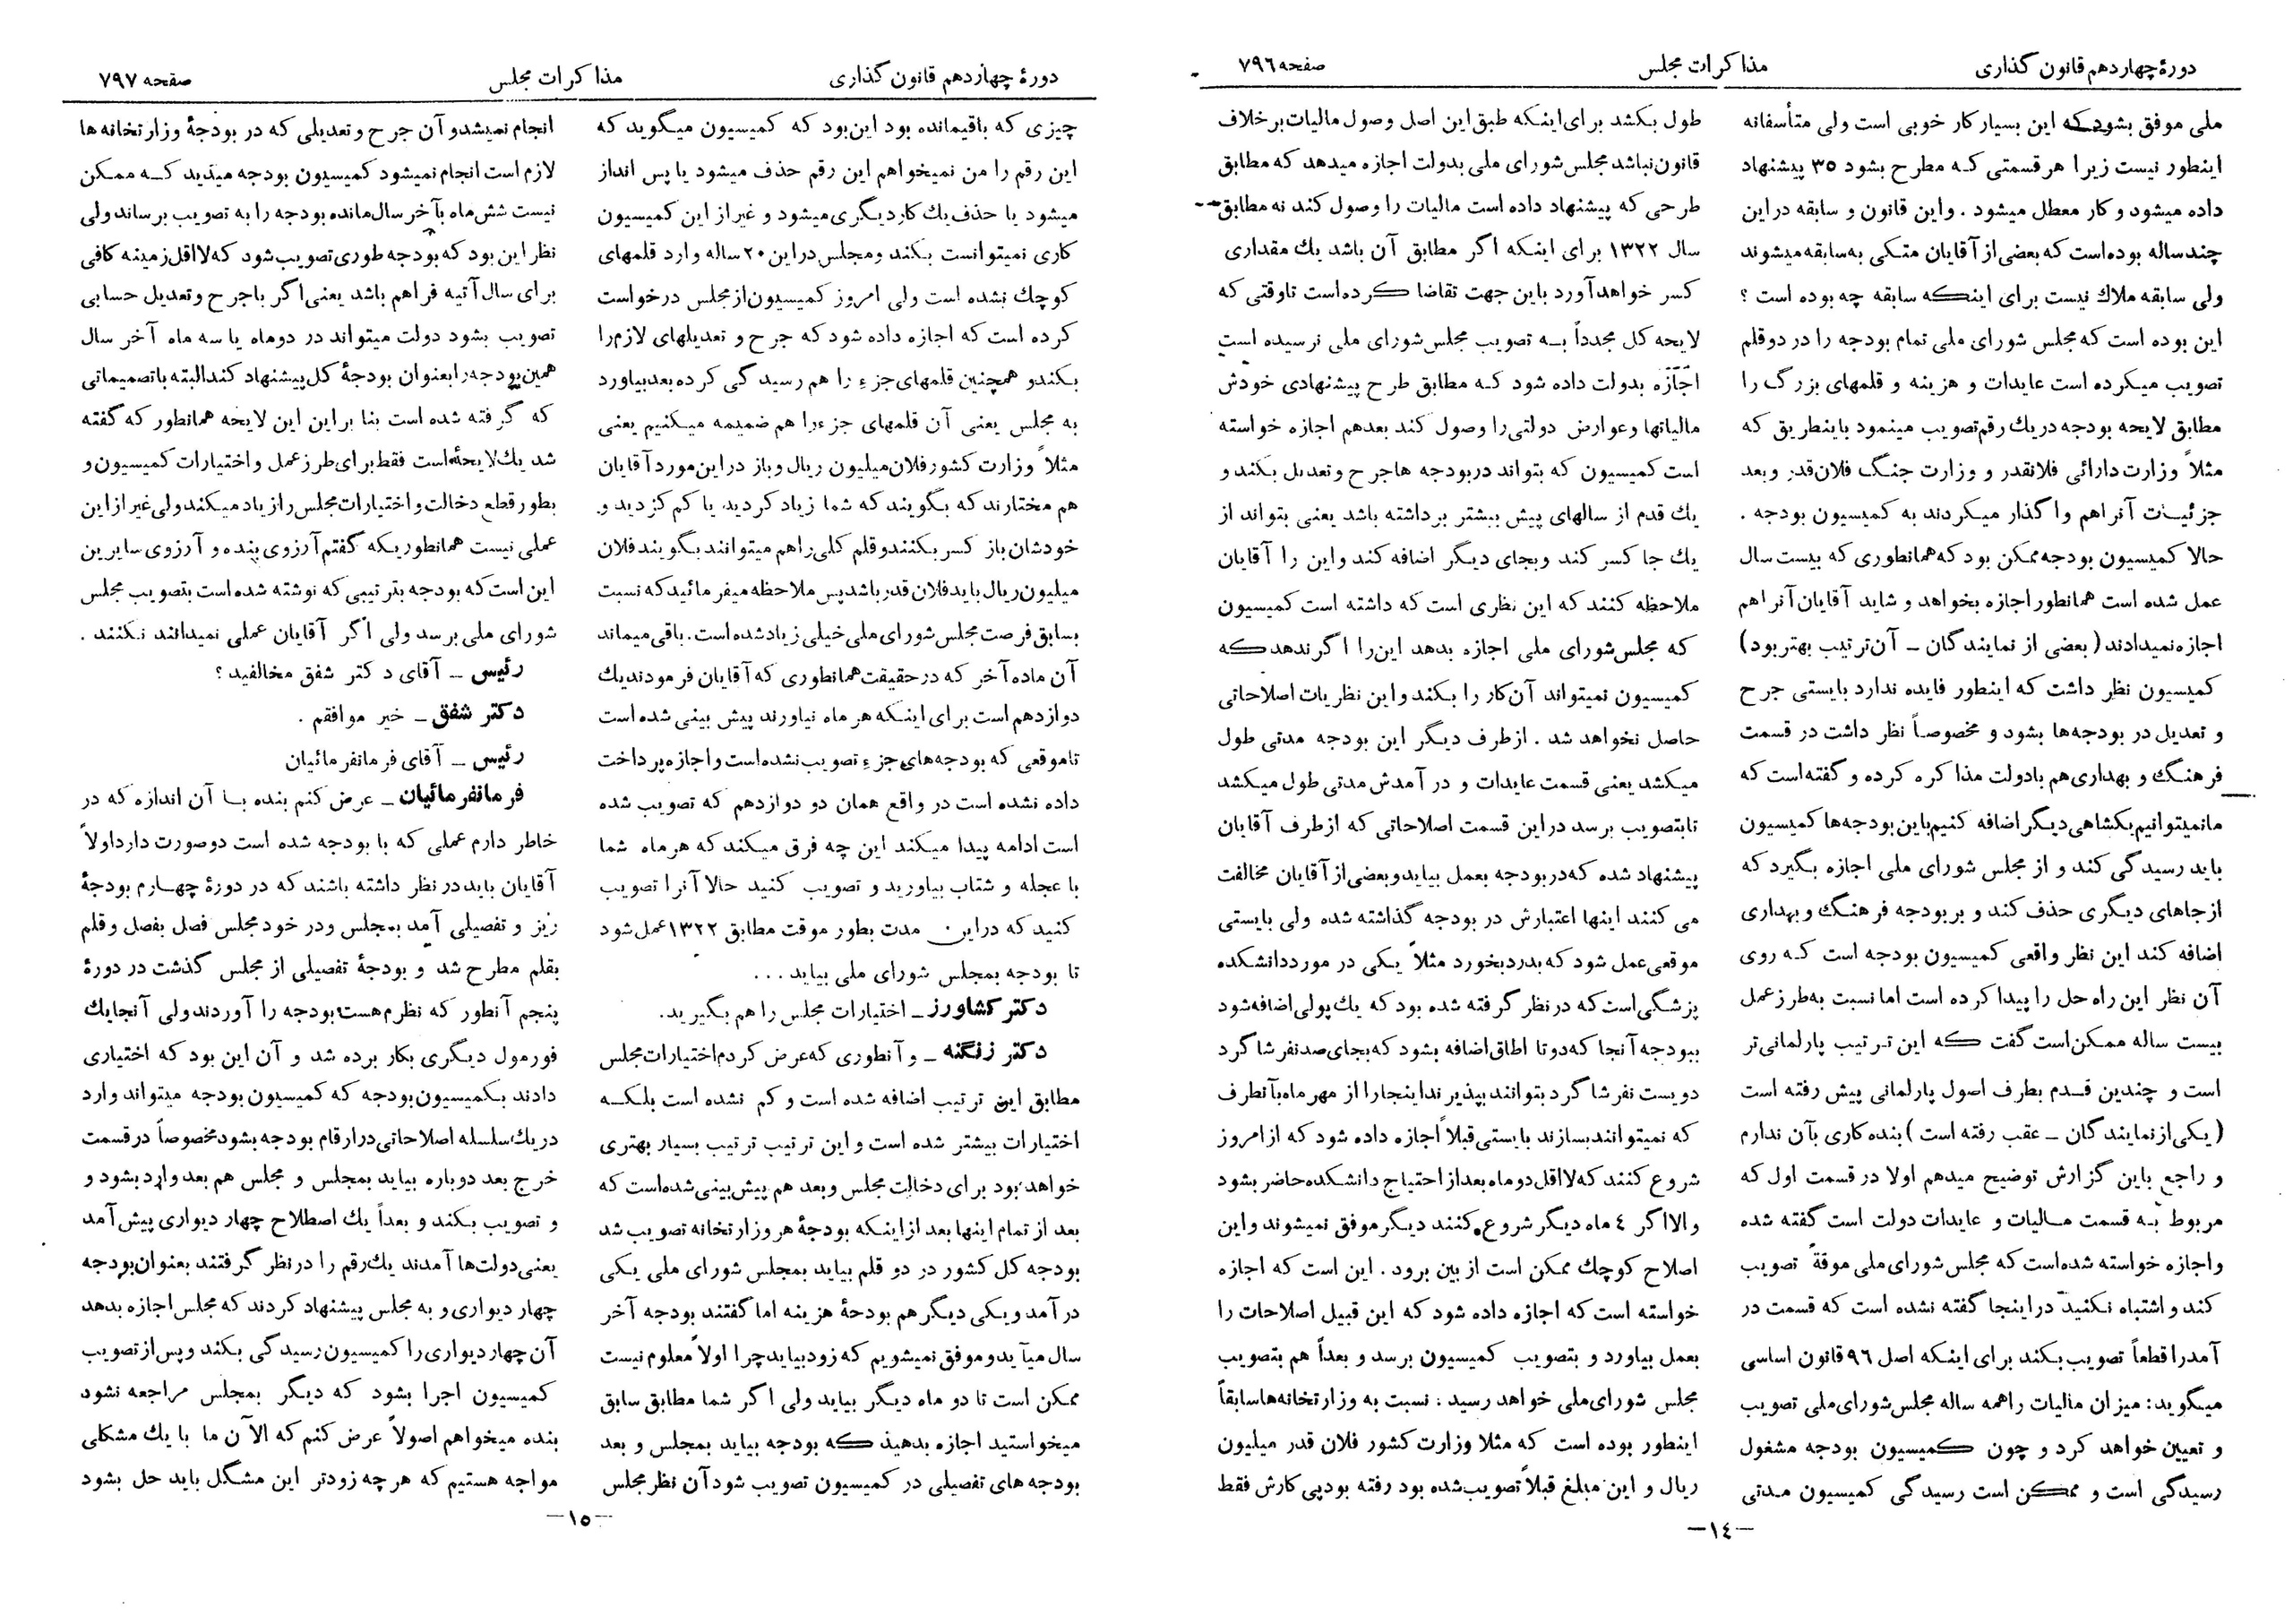 دورهٔ چهاردهم قانون گذاری
مذاکرات مجلس
صفحه ۷۹۶
ملی موفق بشود که این بسیار کار خوبی است ولی متأسفانه
اینطور نیست زیرا هر قسمتی که مطرح بشود ۳۵ پیشنهاد
داده میشود و کار معطل میشود . واین قانون و سابقه در این
چند ساله بوده است که بعضی از آقایان متکی به سابقه میشوند
ولی سابقه ملاك نیست برای اینکه سابقه چه بوده است ؟
این بوده است که مجلس شورای ملی تمام بودجه را در دو قلم
تصویب میکرده است عایدات و هزینه و قلمهای بزرگ را
مطابق لایحه بودجه در یك رقم تصویب مینمود باینطریق که
مثلاً وزارت دارائی فلانقدر و وزارت جنگ فلان قدر و بعد
جزئیات آنراهم واگذار میکردند به کمیسیون بودجه .
حالا کمیسیون بودجه ممکن بود که همانطوری که بیست سال
عمل شده است همانطور اجازه بخواهد و شاید آقایان آنراهم
اجازه نمیدادند ( بعضی از نمایندگان ــ آن ترتیب بهتر بود)
کمیسیون نظر داشت که اینطور فایده ندارد بایستی جرح
و تعدیل در بودجه‌ها بشود و مخصوصاً نظر داشت در قسمت
فرهنگ و بهداری هم بادولت مذاکره کرده و گفته است که
ما نمیتوانیم یکشاهی دیگر اضافه کنیم باین بودجه‌ها کمیسیون
باید رسیدگی کند و از مجلس شورای ملی اجازه بگیرد که
از جاهای دیگری حذف کند و بر بودجه فرهنگ و بهداری
اضافه کند این نظر واقعی کمیسیون بودجه است که روی
آن نظر این راه حل را پیدا کرده است اما نسبت به طرز عمل
بیست ساله ممکن است گفت که این ترتیب پارلمانی تر
است و چندین قدم بطرف اصول پارلمانی پیش رفته است
( یکی از نمایندگان ــ عقب رفته است ) بنده کاری بآن ندارم
و راجع باین گزارش توضیح میدهم اولا در قسمت اول که
مربوط به قسمت مالیات و عایدات دولت است گفته شده
و اجازه خواسته شده است که مجلس شورای ملی موقةً تصویب
کند و اشتباه نکنید در اینجا گفته نشده است که قسمت در
آمد را قطعاً تصویب بکند برای اینکه اصل ۹۶ قانون اساسی
میگوید : میزان مالیات را همه ساله مجلس شورای ملی تصویب
و تعیین خواهد کرد و چون کمیسیون بودجه مشغول
رسیدگی است و ممکن است رسیدگی کمیسیون مدتی
طول بکشد برای اینکه طبق این اصل وصول مالیات بر خلاف
قانون نباشد مجلس شورای ملی بدولت اجازه میدهد که مطابق
طرحی که پیشنهاد داده است مالیات را وصول کند نه مطابق
سال ۱۳۲۲ برای اینکه اگر مطابق آن باشد یك مقداری
کسر خواهد آورد باین جهت تقاضا کرده است تا وقتی که
لایحه کل مجدداً به تصویب مجلس شورای ملی نرسیده است
اجازه بدولت داده شود که مطابق طرح پیشنهادی خودش
مالیاتها و عوارض دولتی را وصول کند بعدهم اجازه خواسته
است کمیسیون که بتواند در بودجه ها جرح و تعدیل بکند و
یك قدم از سالهای پیش بیشتر برداشته باشد یعنی بتواند از
یك جا کسر کند و بجای دیگر اضافه کند و این را آقایان
ملاحظه کنند که این نظری است که داشته است کمیسیون
که مجلس شورای ملی اجازه بدهد این را اگر ندهد که
کمیسیون نمیتواند آن کار را بکند و این نظریات اصلاحاتی
حاصل نخواهد شد . از طرف دیگر این بودجه مدتی طول
میکشد یعنی قسمت عایدات و در آمدش مدتی طول میکشد
تا بتصویب برسد در این قسمت اصلاحاتی که از طرف آقایان
پیشنهاد شده که در بودجه بعمل بیاید و بعضی از آقایان مخالفت
می کنند اینها اعتبارش در بودجه گذاشته شده ولی بایستی
موقعی عمل شود که بدرد بخورد مثلاً یکی در مورد دانشکده
پزشگی است که در نظر گرفته شده بود که یك پولی اضافه شود
ببودجه آنجا که دو تا اطاق اضافه بشود که بجای صد نفر شاگرد
دویست نفر شاگرد بتوانند بپذیرند اینجا را از مهر ماه بآنطرف
که نمیتوانند بسازند بایستی قبلاً اجازه داده شود که از امروز
شروع کنند که لااقل دو ماه بعد از احتیاج دانشکده حاضر بشود
والا اگر ٤ ماه دیگر شروع کنند دیگر موفق نمیشوند و این
اصلاح کوچك ممکن است از بین برود . این است که اجازه
خواسته است که اجازه داده شود که این قبیل اصلاحات را
بعمل بیاورد و بتصویب کمیسیون برسد و بعداً هم بتصویب
مجلس شورای ملی خواهد رسید ؛ نسبت به وزارتخانه ها سابقاً
اینطور بوده است که مثلا وزارت کشور فلان قدر میلیون
ریال و این مبلغ قبلاً تصویب شده بود رفته بود پی کارش فقط
ــ١٤ــ
دورهٔ چهاردهم قانون گذاری
مذاکرات مجلس
صفحه ۷۹۷
چیزی که باقیمانده بود این بود که کمیسیون میگوید که
این رقم را من نمیخواهم این رقم حذف میشود یا پس انداز
میشود یا حذف یك کار دیگری میشود و غیر از این کمیسیون
کاری نمیتوانست بکند و مجلس در این ۲۰ ساله وارد قلمهای
کوچك نشده است ولی امروز کمیسیون از مجلس درخواست
کرده است که اجازه داده شود که جرح و تعدیلهای لازم را
بکند و همچنین قلمهای جزء را هم رسیدگی کرده بعد بیاورد
به مجلس یعنی آن قلمهای جزء را هم ضمیمه میکنیم یعنی
مثلاً وزارت کشور فلان میلیون ریال و باز در این مورد آقایان
هم مختارند که بگویند که شما زیاد کردید یا کم کردید و
خودشان باز کسر بکنند و قلم کلی را هم میتوانند بگویند فلان
میلیون ریال باید فلان قدر باشد پس ملاحظه میفرمائید که نسبت
بسابق فرصت مجلس شورای ملی خیلی زیاد شده است . باقی میماند
آن ماده آخر که در حقیقت همانطوری که آقایان فرمودند یك
دوازدهم است برای اینکه هر ماه نیاورند پیش بینی شده است
تا موقعی که بودجه های جزء تصویب نشده است و اجازه پرداخت
داده نشده است در واقع همان دو دوازدهم که تصویب شده
است ادامه پیدا میکند این چه فرق میکند که هر ماه شما
با عجله و شتاب بیاورید و تصویب کنید حالا آنرا تصویب
کنید که در این مدت بطور موقت مطابق ۱۳۲۲ عمل شود
تا بودجه بمجلس شورای ملی بیاید . . .
دکتر کشاورز ــ اختیارات مجلس را هم بگیرید .
دکتر زنگنه ــ و آنطوری که عرض کردم اختیارات مجلس
مطابق این ترتیب اضافه شده است و کم نشده است بلکه
اختیارات بیشتر شده است و این ترتیب ترتیب بسیار بهتری
خواهد بود برای دخالت مجلس و بعد هم پیش بینی شده است که
بعد از تمام اینها بعد از اینکه بودجهٔ هر وزارتخانه تصویب شد
بودجه کل کشور در دو قلم بیاید بمجلس شورای ملی یکی
در آمد و یکی دیگر هم بودجهٔ هزینه اما گفتند بودجه آخر
سال میآید و موفق نمیشویم که زود بیاید چرا اولاً معلوم نیست
ممکن است تا دو ماه دیگر بیاید ولی اگر شما مطابق سابق
میخواستید اجازه بدهید که بودجه بیاید بمجلس و بعد
بودجه های تفصیلی در کمیسیون تصویب شود آن نظر مجلس
انجام نمیشد و آن جرح و تعدیلی که در بودجهٔ وزارتخانه ها
لازم است انجام نمیشود کمیسیون بودجه میدید که ممکن
نیست شش ماه بآخر سال مانده بودجه را به تصویب برساند ولی
نظر این بود که بودجه طوری تصویب شود که لااقل زمینه کافی
برای سال آتیه فراهم باشد یعنی اگر با جرح و تعدیل حسابی
تصویب بشود دولت میتواند در دوماه یا سه ماه آخر سال
همین بودجه را بعنوان بودجهٔ کل پیشنهاد کند البته با تصمیماتی
که گرفته شده است بنا براین این لایحه همانطور که گفته
شد یك لایحهٔ است فقط برای طرز عمل و اختیارات کمیسیون و
بطور قطع دخالت و اختیارات مجلس را زیاد میکند ولی غیر از این
عملی نیست همانطوریکه گفتم آرزوی بنده و آرزوی سایرین
این است که بودجه بترتیبی که نوشته شده است بتصویب مجلس
شورای ملی برسد ولی اگر آقایان عملی نمیدانند نکنند .
رئیس ــ آقای دکتر شفق مخالفید ؟
دکتر شفق ــ خیر موافقم .
رئیس ــ آقای فرمانفرمائیان
فرمانفرمائیان ــ عرض کنم بنده با آن اندازه که در
خاطر دارم عملی که با بودجه شده است دو صورت دارد اولاً
آقایان باید در نظر داشته باشند که در دورهٔ چهارم بودجهٔ
ریز و تفصیلی آمد بمجلس و در خود مجلس فصل بفصل و قلم
بقلم مطرح شد و بودجهٔ تفصیلی از مجلس گذشت در دورهٔ
پنجم آنطور که نظرم هست بودجه را آوردند ولی آنجا یك
فورمول دیگری بکار برده شد و آن این بود که اختیاری
دادند بکمیسیون بودجه که کمیسیون بودجه میتواند وارد
در یك سلسله اصلاحاتی در ارقام بودجه بشود مخصوصاً در قسمت
خرج بعد دوباره بیاید بمجلس و مجلس هم بعد وارد بشود و
و تصویب بکند و بعداً یك اصطلاح چهار دیواری پیش آمد
یعنی دولت‌ها آمدند یك رقم را در نظر گرفتند بعنوان بودجه
چهار دیواری و به مجلس پیشنهاد کردند که مجلس اجازه بدهد
آن چهار دیواری را کمیسیون رسیدگی بکند و پس از تصویب
کمیسیون اجرا بشود که دیگر بمجلس مراجعه نشود
بنده میخواهم اصولاً عرض کنم که الآن ما با یك مشکلی
مواجه هستیم که هر چه زودتر این مشگل باید حل بشود
ــ١٥ــ